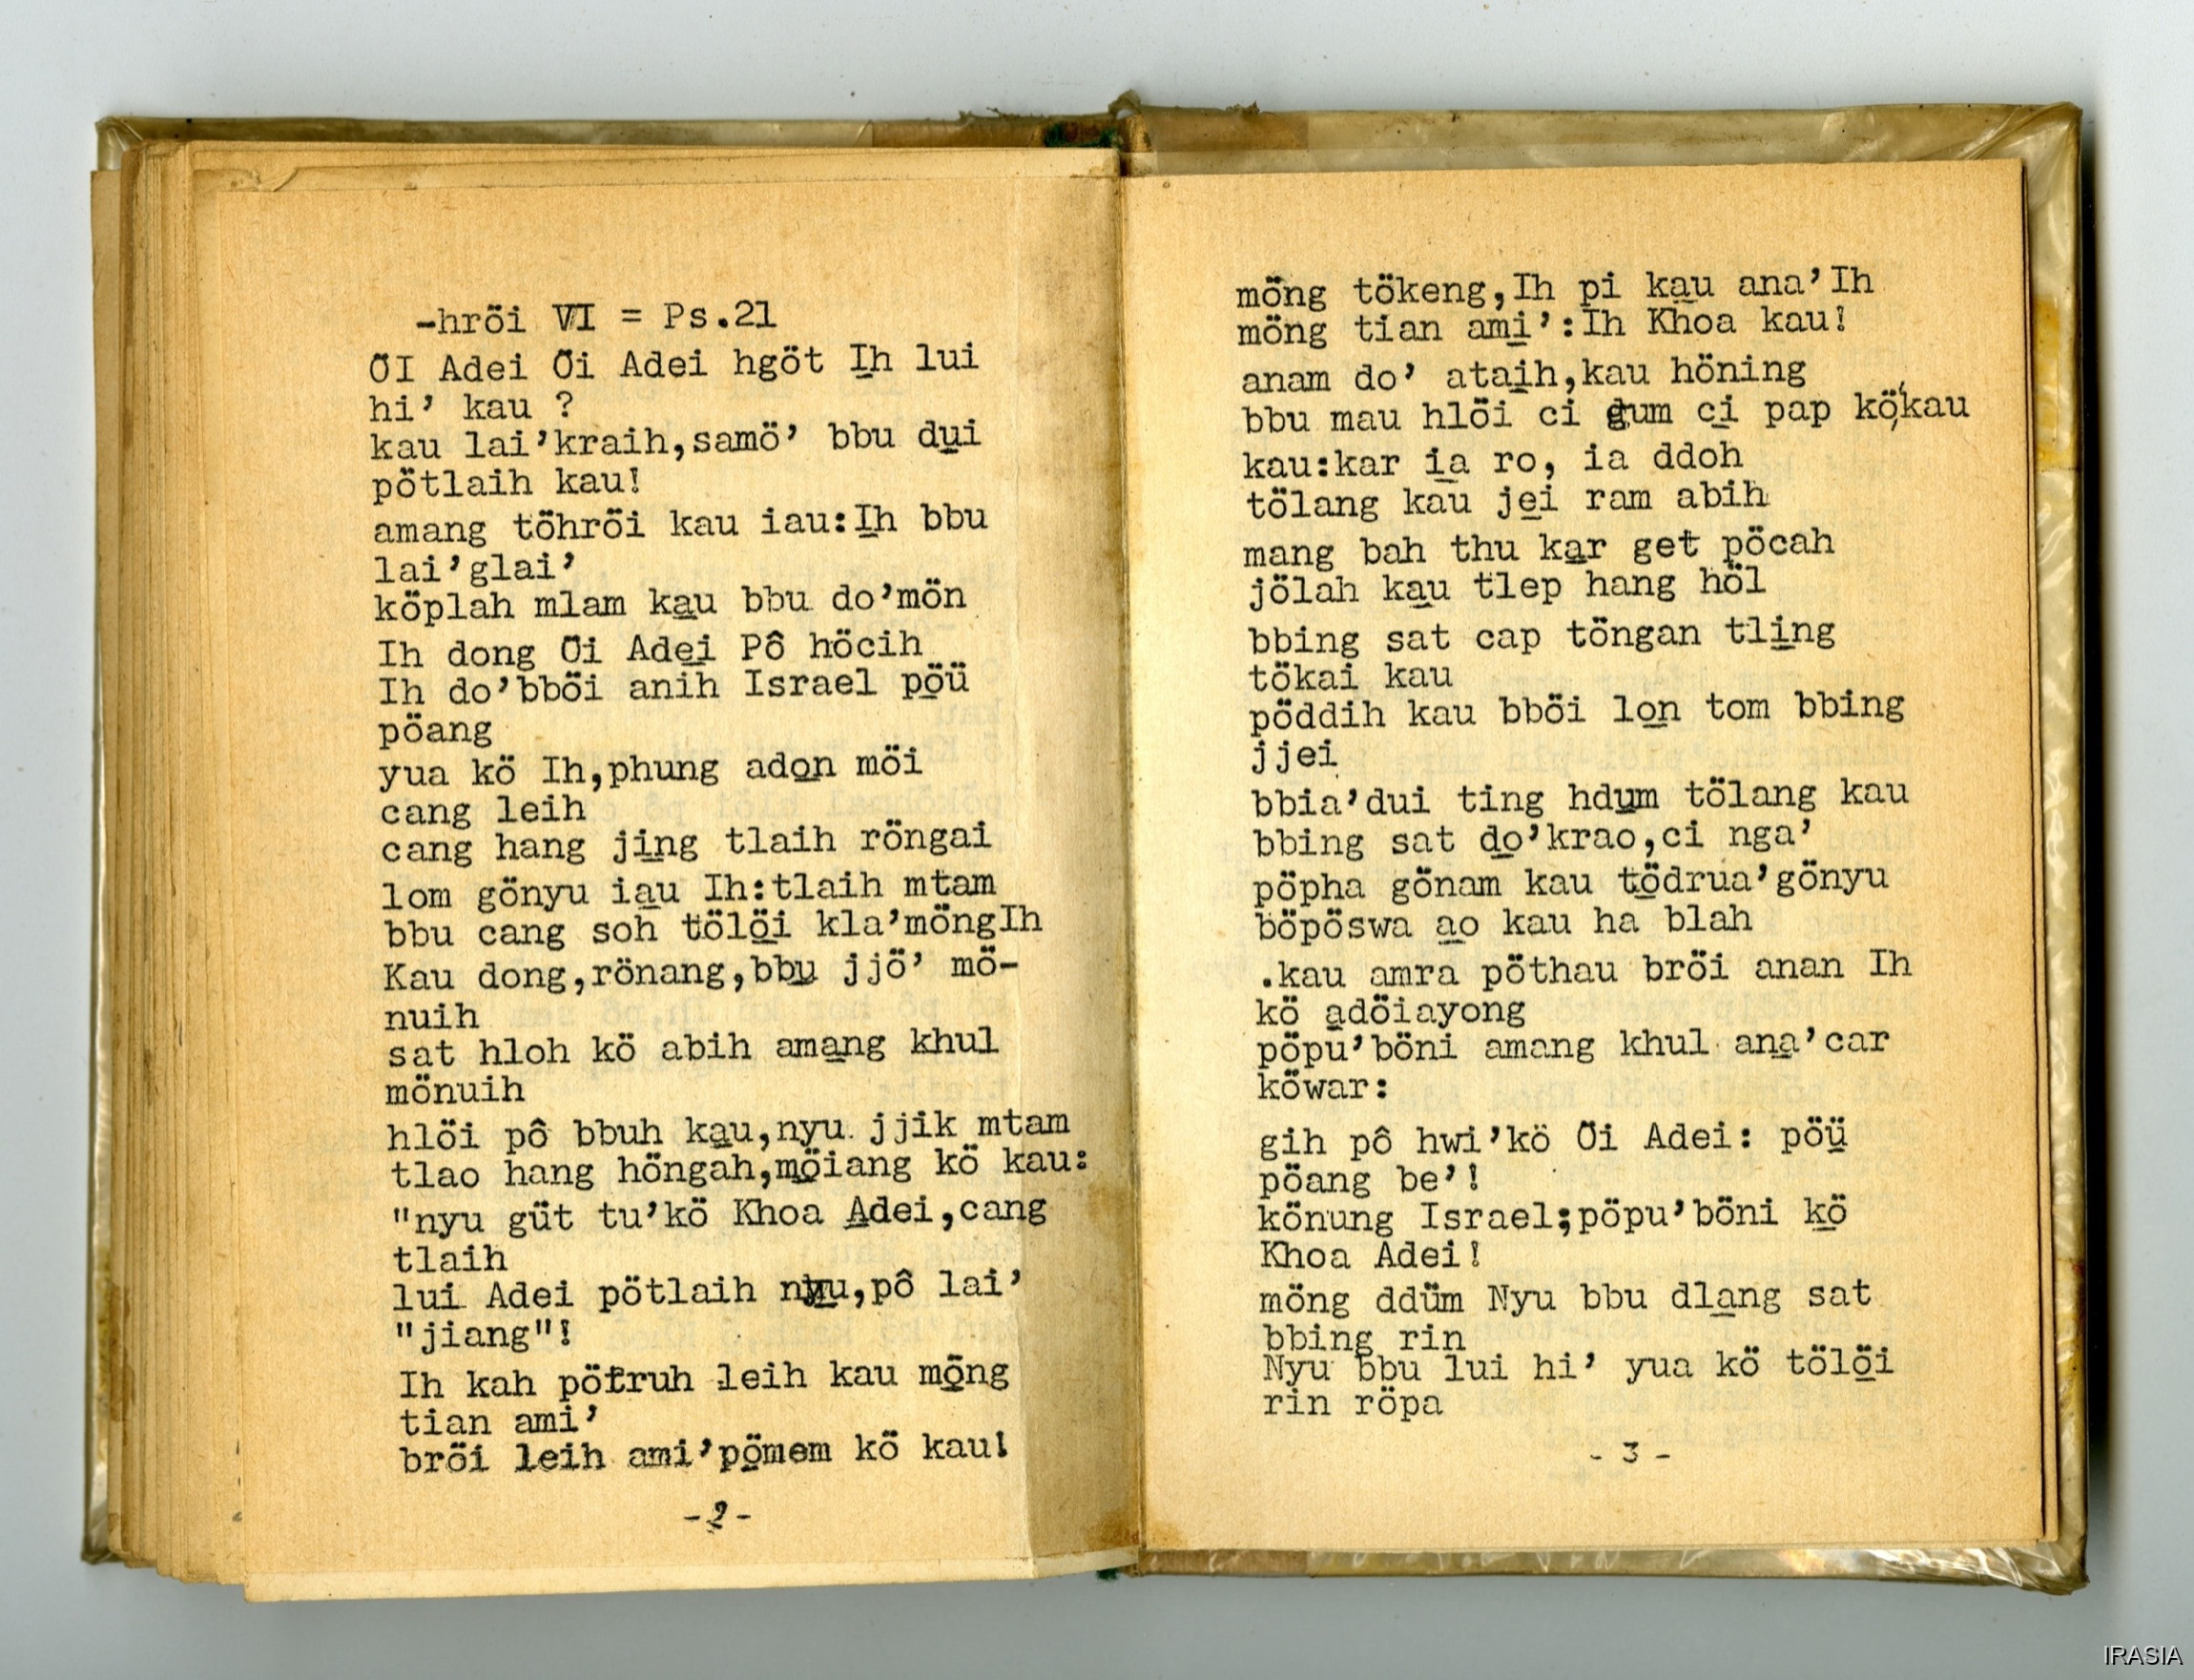 -hröi VI = Ps.21
ÖI Adei Öi Adei hgöt Ih lui
hi' kau ?
kau lai'kraih,samö' bbu dui
pötlaih kau!
amang töhröi kau iau:Ih bbu
lai'glai'
köplah mlam kau bbu do'mön
Ih dong Öi Adei Pô höcih
Ih do'bböi anih Israel pöü
pöang
yua kö Ih,phung adon möi
cang leih
cang hang jing tlaih röngai
lom gönyu iau Ih:tlaih mtam
bbu cang soh tölöi kla'möngIh
Kau dong,rönang,bbu jjö' mö-
nuih
sat hloh kö abih amang khul
mönuih
hlöi pô bbuh kau,nyu jjik mtam
tlao hang höngah,möiang kö kau:
"nyu güt tu'kö Khoa Adei,cang
tlaih
lui Adei pötlaih nyu,pô lai'
"jiang"!
Ih kah pötruh leih kau möng
tian ami'
bröi leih ami'pömem kö kau!
-2-
möng tökeng,Ih pi kau ana'Ih
möng tian ami':Ih Khoa kau!
anam do' ataih,kau höning
bbu mau hlöi ci gum ci pap kö'kau
kau:kar ia ro, ia ddoh
tölang kau jei ram abih
mang bah thu kar get pöcah
jölah kau tlep hang höl
bbing sat cap töngan tling
tökai kau
pöddih kau bböi lon tom bbing
jjei
bbia'dui ting hdum tölang kau
bbing sat do'krao,ci nga'
pöpha gönam kau tödrua'gönyu
böpöswa ao kau ha blah
.kau amra pöthau bröi anan Ih
kö adöiayong
pöpu'böni amang khul ana'car
köwar:
gih pô hwi'kö Öi Adei: pöü
pöang be'!
könung Israel;pöpu'böni kö
Khoa Adei!
möng ddüm Nyu bbu dlang sat
bbing rin
Nyu bbu lui hi' yua kö tölöi
rin röpa
- 3 -
IRASIA